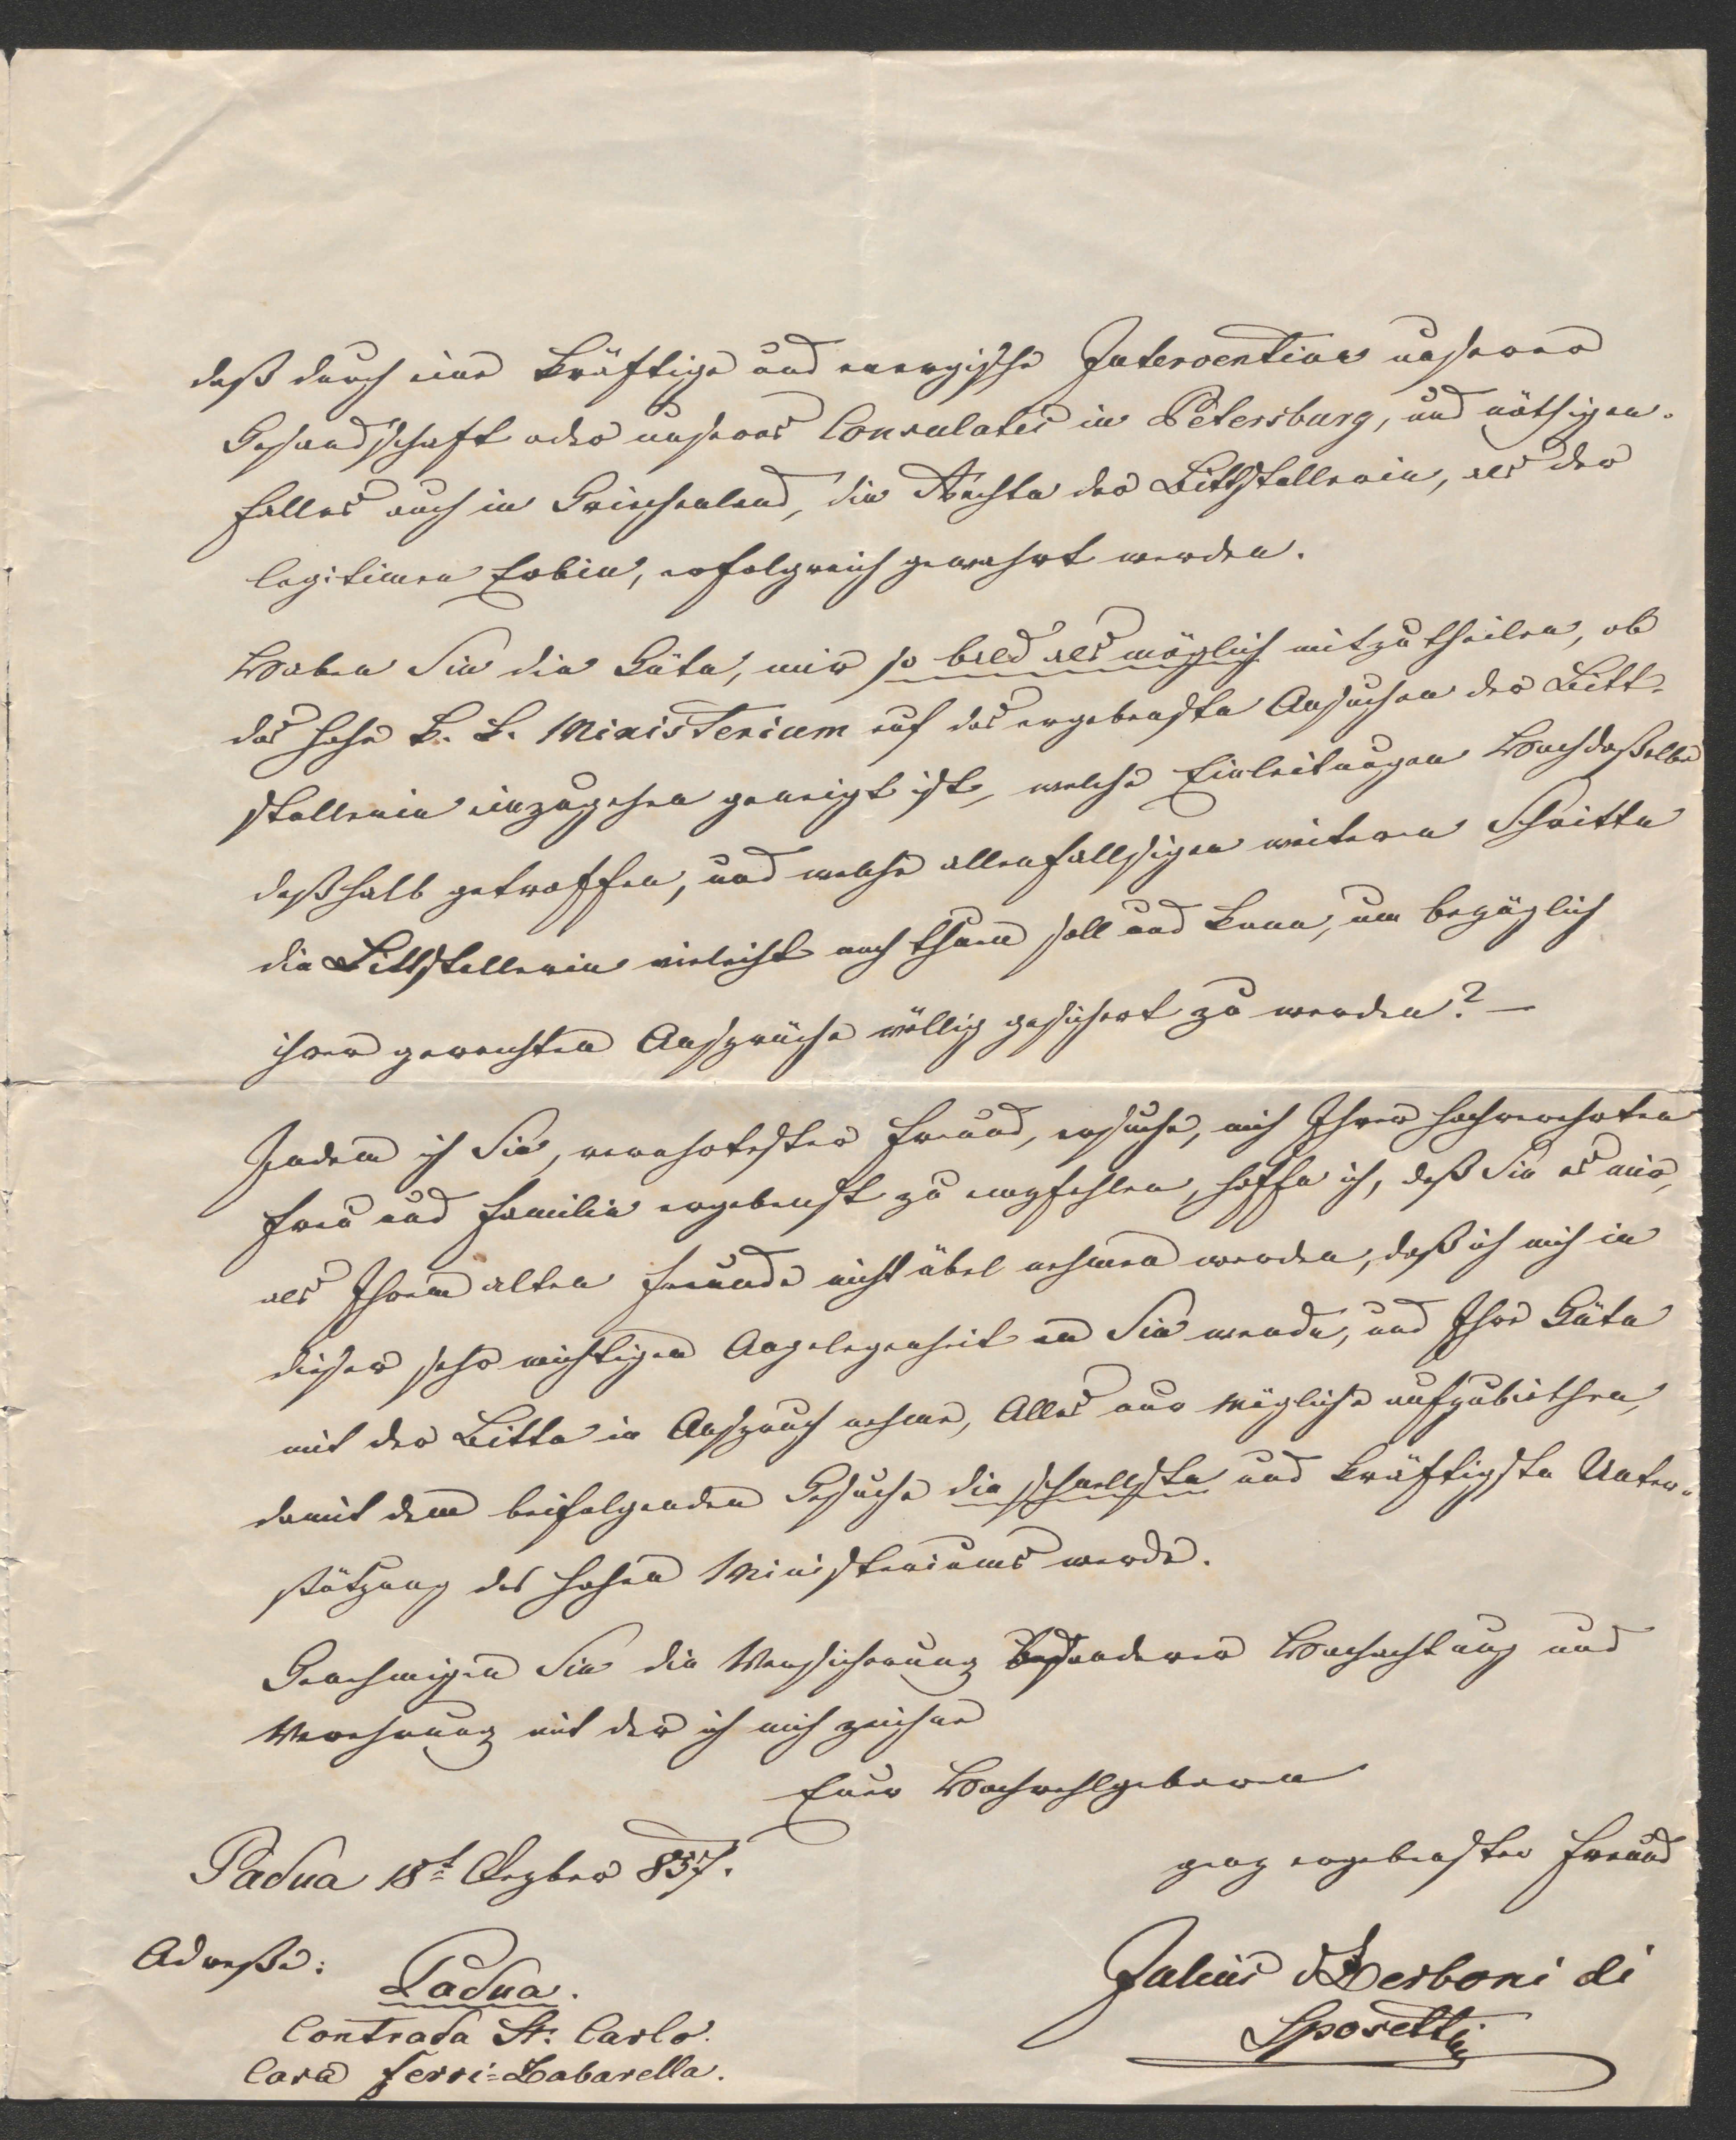 daß durch eine kräftige und energische Intervention unserer
Gesandschaft oder unseres Consulates in Petersburg, und nöthigen-
falles auch in Griechenland, die Rechte der Bittstellerin, als der
legitimen Erbin, erfolgreich gewahrt werden.
Haben Sie die Güte, mir so bald als möglich mitzutheilen, ob
das hohe k. k. Ministerium auf das ergebenste Ansuchen der Bitt-
stellerin einzugehen geneigt ist, welche Einleitungen Hochdaßelbe
deßhalb getroffen, und welche allenfallsigen weiteren Schritte
die Bittstellerin vieleicht noch thuen soll und kann, um bezüglich
ihrer gerechten Ansprüche völlig gesichert zu werden? –
Indem ich Sie, verehrtester Freund, ersuche, mich Ihrer hochverehrten
Frau und Familie ergebenst zu empfehlen, hoffe ich, daß Sie es mir,
als Ihrem alten Freunde nicht übel nehmen werden, daß ich mich in
dieser sehr wichtigen Angelegenheit an Sie wende, und Ihre Güte
mit der Bitte in Anspruch nehme, Alles nur Mögliche aufzubiethen,
damit dem beifolgenden Gesuche die schnellste und kräftigste Unter-
stützung des hohen Ministeriums werde.
Genehmigen Sie die Versicherung besonderer Hochachtung und
Verehrung mit der ich mich zeichne
Euer Hochwohlgeboren
ganz ergebenster Freund
Padua 18t Dezber 857.
Julius Zerboni di
Sposetti
Adresse:
Padua.
Contrada St: Carlo.
Casa Ferri-Zabarella.